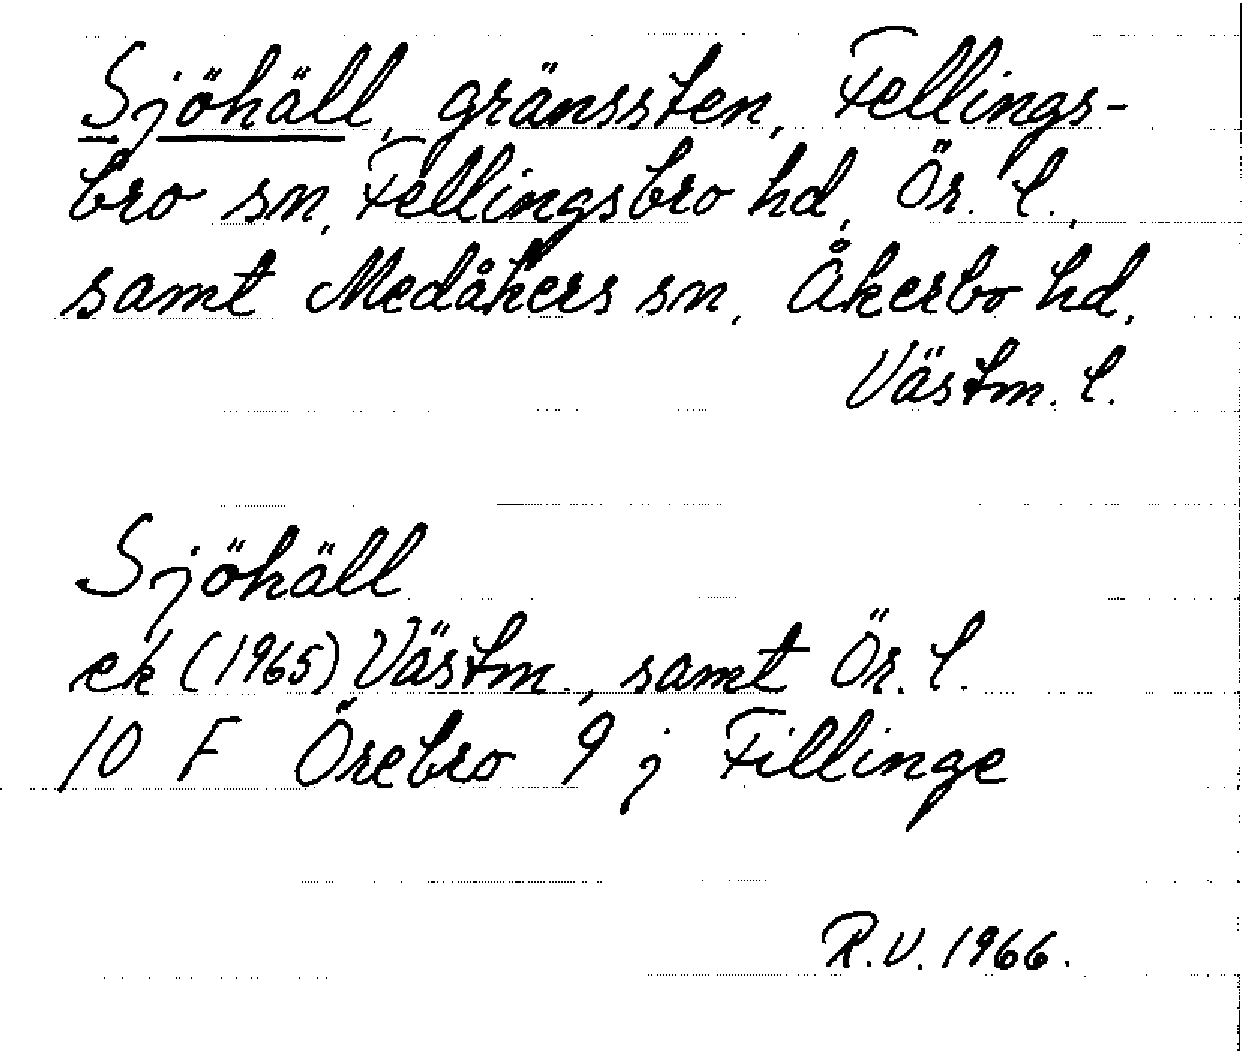 Sjöhäll, gränssten, Fellings-
bro sn, Fellingsbro hd, Ör. l.,
samt Medåkers sn, Åkerbo hd,
Västm. l.
Sjöhäll
ek (1965) Västm., samt Ör. l.
10 F Örebro 9 j Fillinge
R.V. 1966.